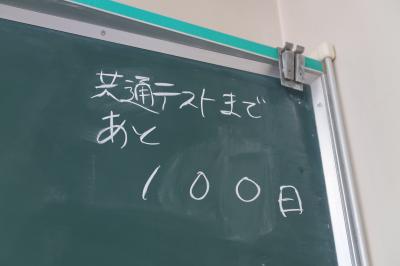 共通テストまで
あと
100日